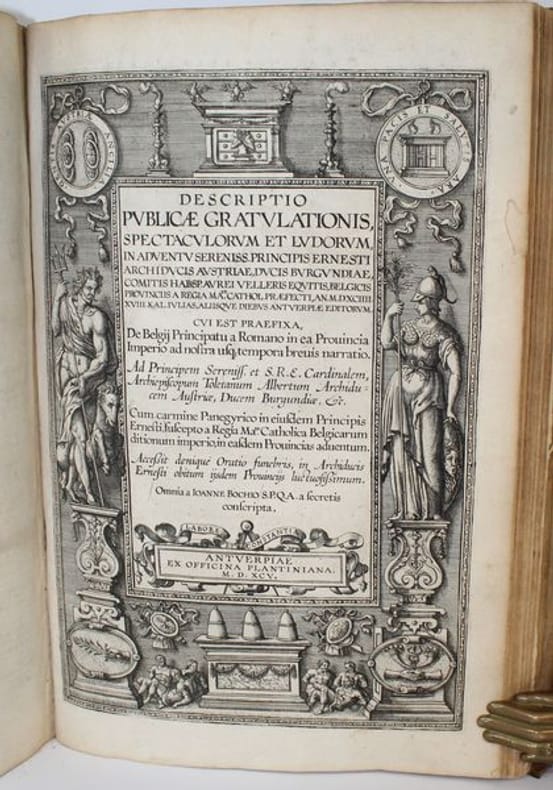 AVSTRIA
VNA PACIS ET SALVTIS ARA
DESCRIPTIO
PVBLICÆ GRATVLATIONIS,
SPECTACVLORVM ET LVDORVM,
IN ADVENTV SERENISS. PRINCIPIS ERNESTI
ARCHIDVCIS AVSTRIAE, DVCIS BVRGVNDIAE,
COMITIS HABSP. AVREI VELLERIS EQVITIS, BELGICIS
PROVINCIIS A REGIA MA.TE CATHOL. PRÆFECTI, AN. M.D.XCIIII.
XVIII. KAL. IVLIAS, ALIISQVE DIEBVS ANTVERPIÆ EDITORVM.
CVI EST PRAEFIXA,
De Belgij Principatu a Romano in ea Prouincia
Imperio ad nostra usq; tempora breuis narratio.
Ad Principem Sereniss. et S.R.E. Cardinalem,
Archiepiscopum Toletanum Albertum Archidu-
cem Austriæ, Ducem Burgundiæ, &c.
Cum carmine Panegyrico in eiusdem Principis
Ernesti, suscepto a Regia Ma.te Catholica Belgicarum
ditionum imperio, in easdem Prouincias aduentum.
Accessit denique Oratio funebris, in Archiducis
Ernesti obitum ijsdem Prouincijs luctuosissimum.
Omnia a IOANNE BOCHIO S.P.Q.A. a secretis
conscripta.
LABORE CONSTANTIA
ANTVERPIAE
EX OFFICINA PLANTINIANA.
M. D. XCV.